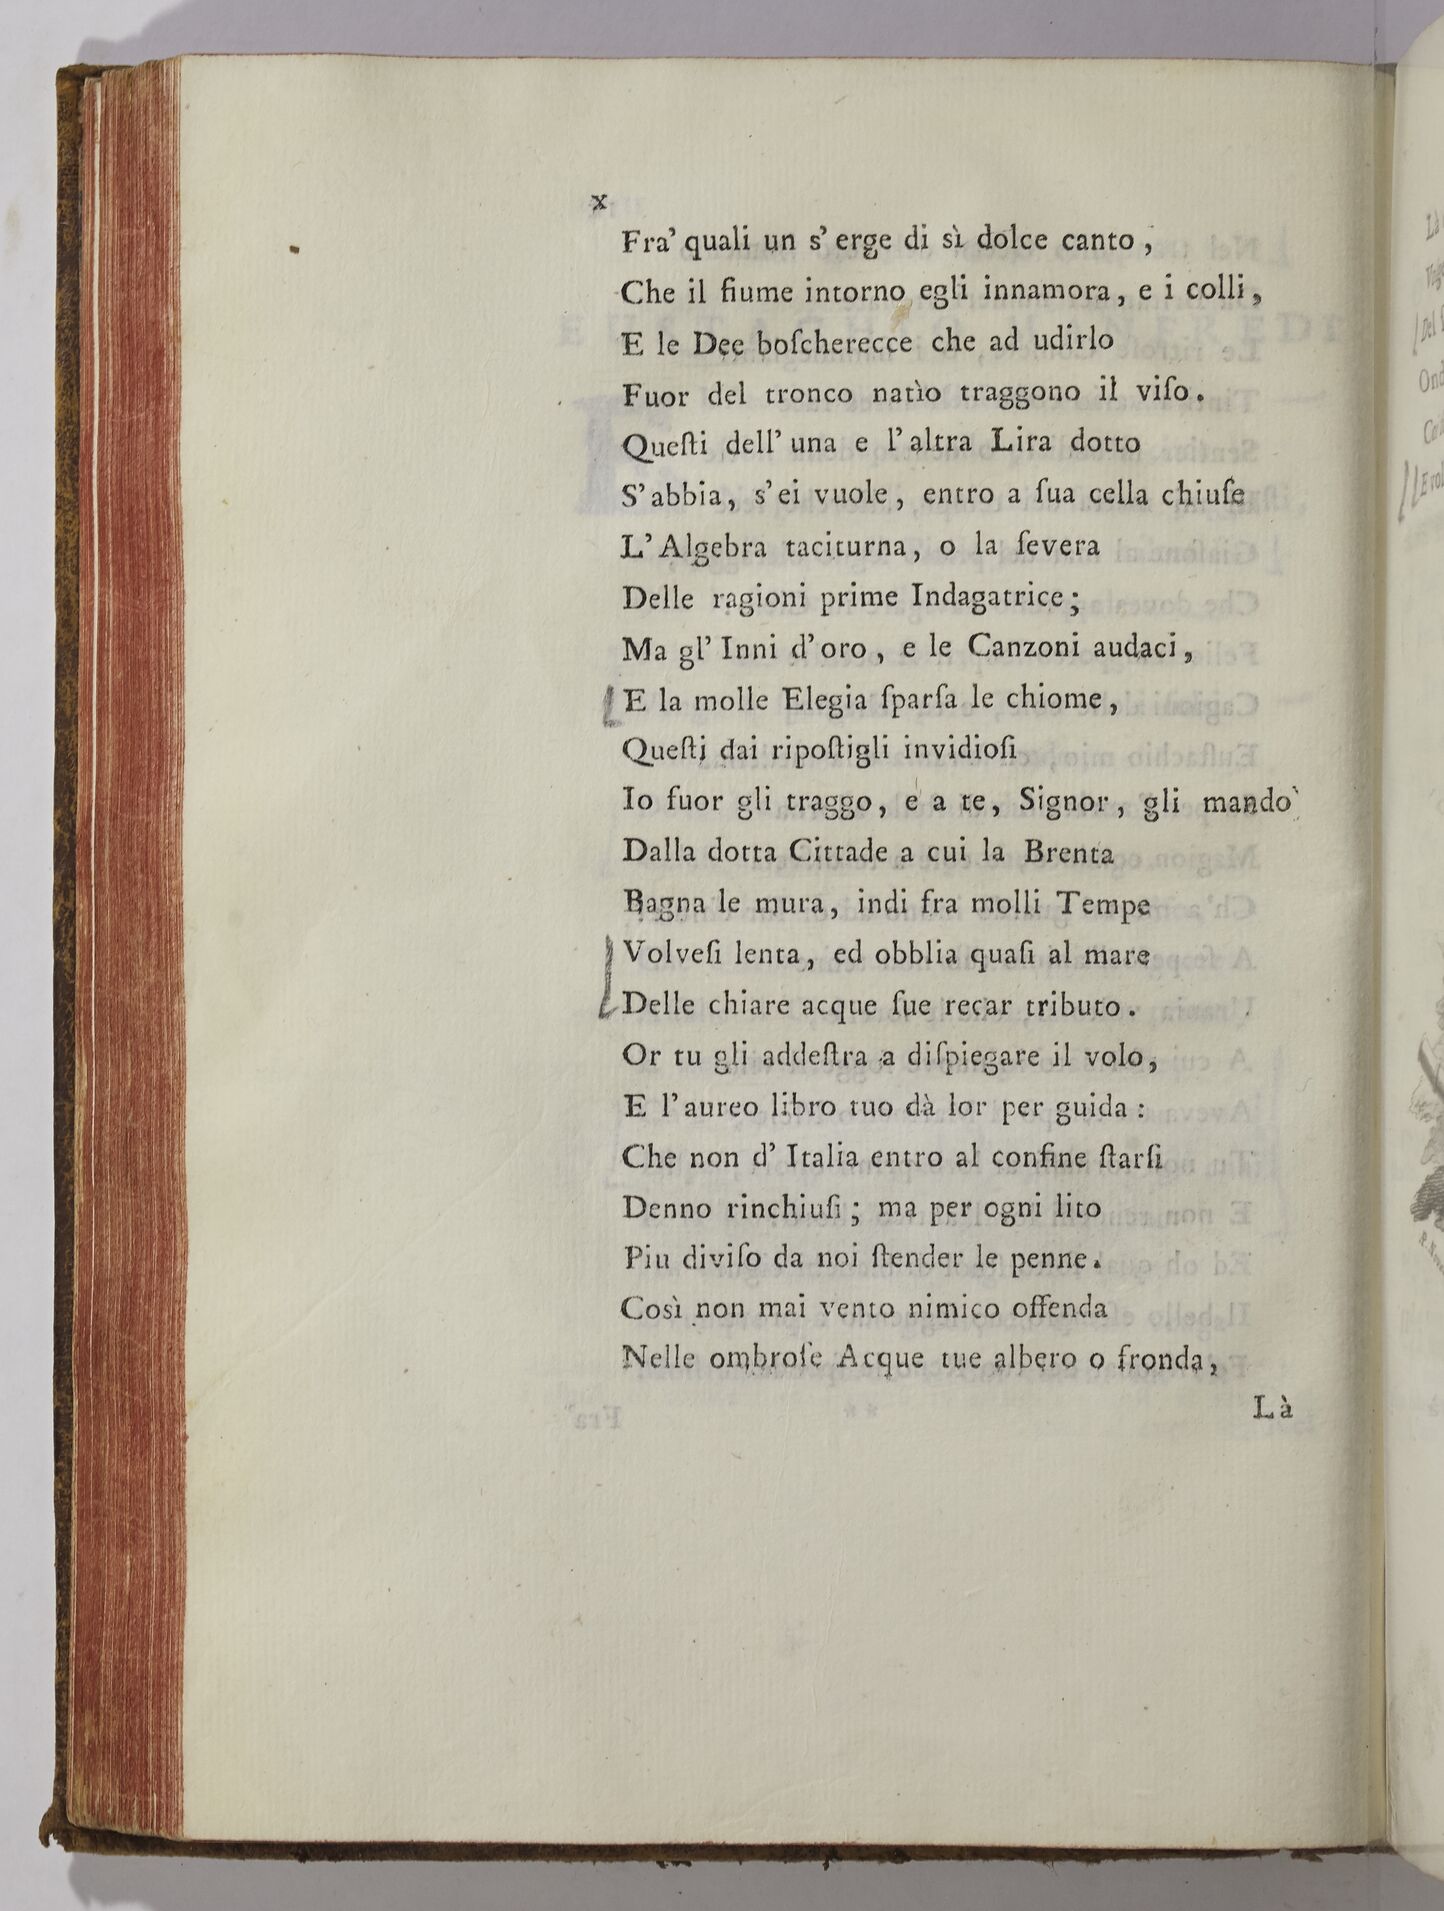 x
Fra' quali un s' erge di sì dolce canto ,
Che il fiume intorno egli innamora, e i colli,
E le Dee boſcherecce che ad udirlo
Fuor del tronco natìo traggono il viſo.
Queſti dell' una e l' altra Lira dotto
S' abbia, s' ei vuole, entro a ſua cella chiuſe
L' Algebra taciturna, o la ſevera
Delle ragioni prime Indagatrice;
Ma gl' Inni d' oro, e le Canzoni audaci,
E la molle Elegia ſparſa le chiome,
Queſti dai ripoſtigli invidioſi
Io fuor gli traggo, e a te, Signor, gli mando
Dalla dotta Cittade a cui la Brenta
Bagna le mura, indi fra molli Tempe
Volveſi lenta, ed obblia quaſi al mare
Delle chiare acque ſue recar tributo.
Or tu gli addeſtra a diſpiegare il volo,
E l' aureo libro tuo dà lor per guida:
Che non d' Italia entro al confine ſtarſi
Denno rinchiuſi; ma per ogni lito
Piu diviſo da noi ſtender le penne.
Così non mai vento nimico offenda
Nelle ombroſe Acque tue albero o fronda,
Là